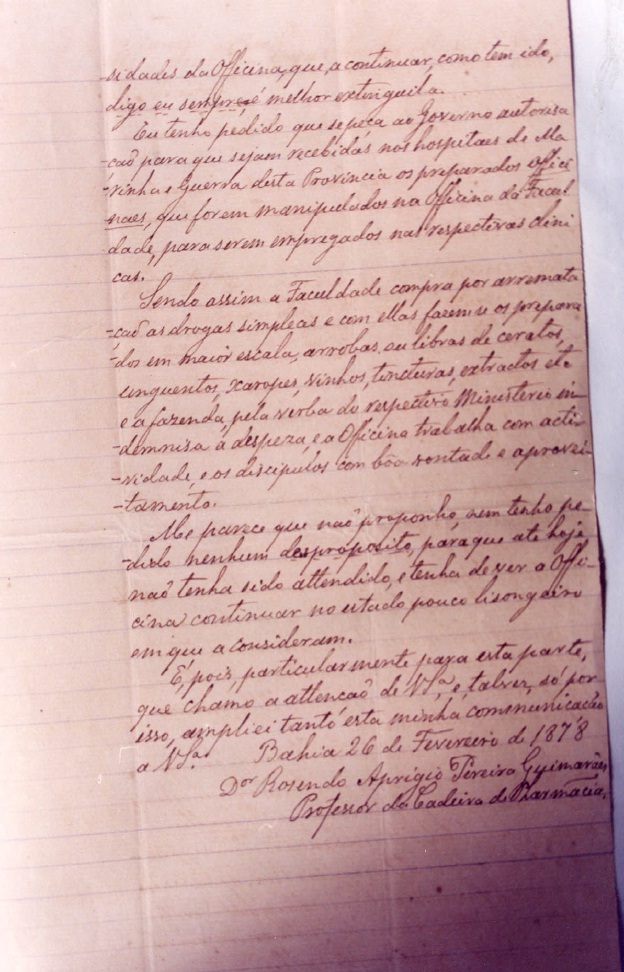 sidades da Officina, que, a continuar, como tem ido,
digo eu sempre, é melhor extenguila.
Eu tenho pedido que se peça ao Governo autorisa
-caõ para que sejam recebidas nos hospitaes de Ma
-rinha e Guerra desta Provincia os preparados offici
naes, que forem manipulados na Officina da Facul
dade, para serem empregados nas respectivas clini
cas.
Sendo assim a Faculdade compra por arremata
-caõ as drogas simpleas e com ellas fasem se os prepara
dos em maior escala, arrobas, ou libras de ceratos,
unguentos, xaropes, vinhos, tincturas, extractos etc
e a fazenda, pela verba do respectivo Ministerio in-
-demnisa a despeza, e a Officina trabalha com acti-
-vidade, e os discipulos com bôa vontade e aprovei-
-tamento.
Me parece que naõ proponho, nem tenho pe-
-dido nenhum desproposito, para que até hoje
naõ tenha sido attendido, e tenha de ver a Offi-
cina continuar no estado pouco lisongeiro
em que a consideram.
É, pois, particularmente para esta parte,
que chamo a attencaõ de V.Sª, e talvez, só por
isso, ampliei tanto esta minha communicacaõ
a V.Sª. Bahia 26 de Fevereiro de 1878
Dor Rosendo Aprigio Pereira Guimarães
Professor da Cadeira de Pharmacia.